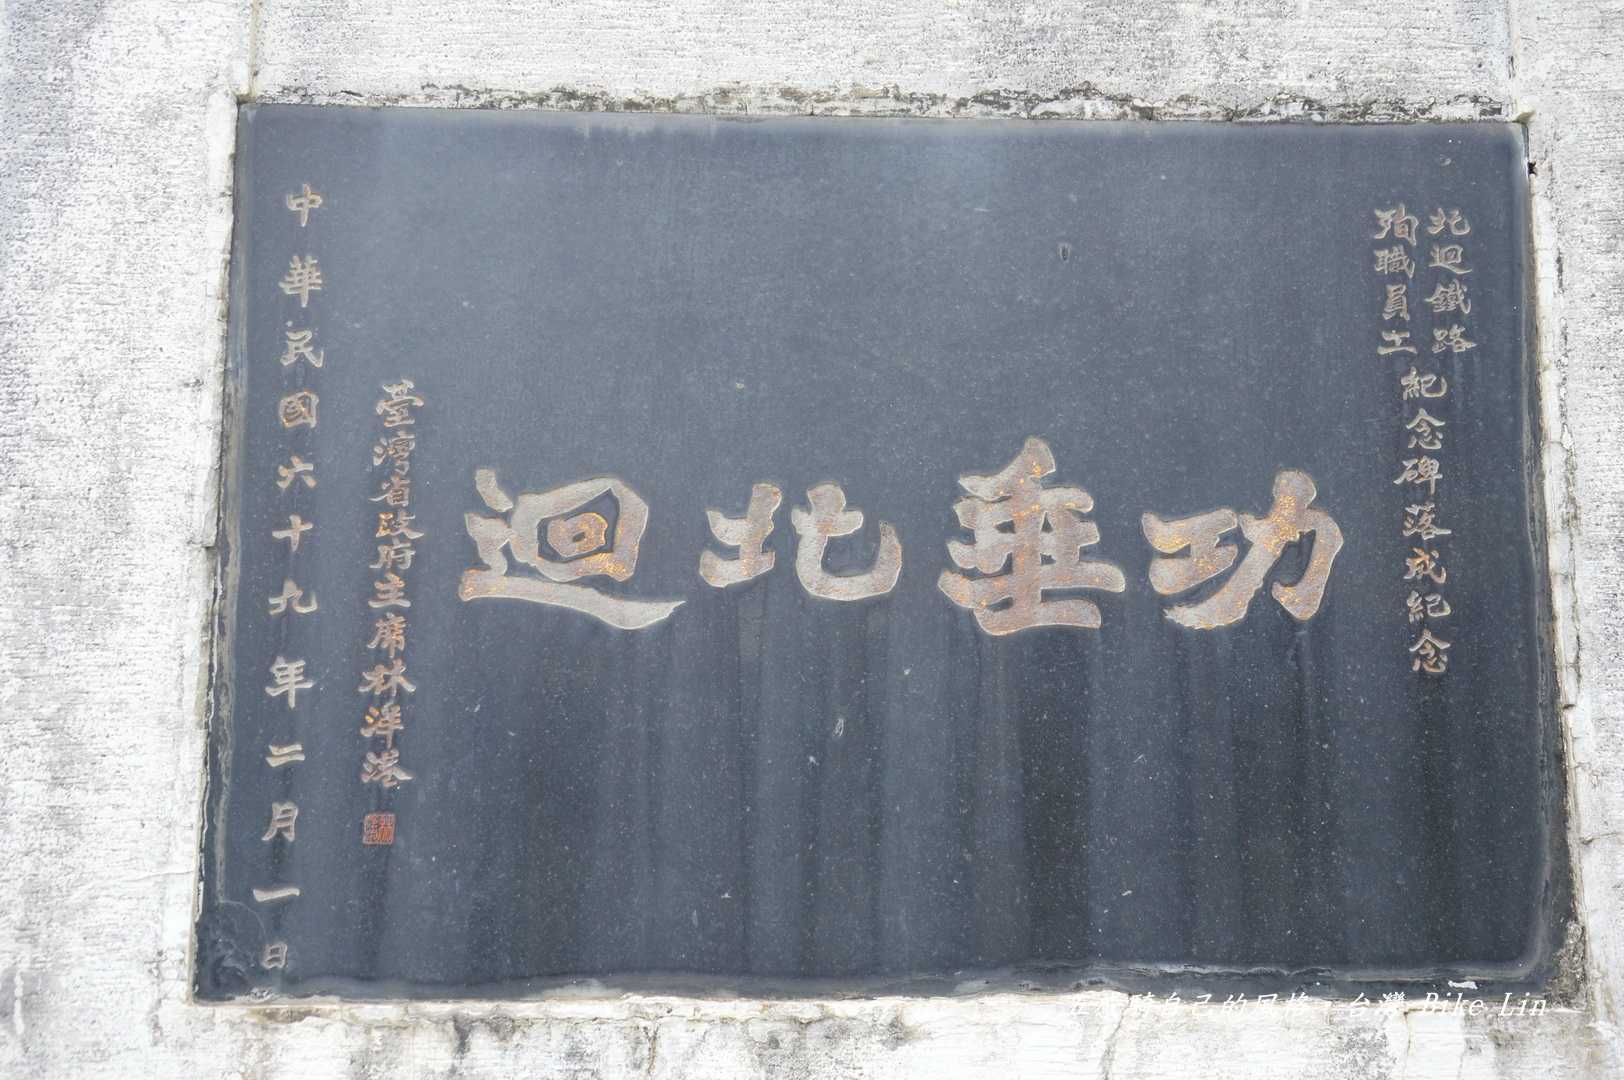 北迴鐵路
殉職員工
紀念碑落成紀念
功垂北迴
臺灣省政府主席林洋港
中華民國六十九年二月一日
騎自己的風格 台灣 Bike Lin